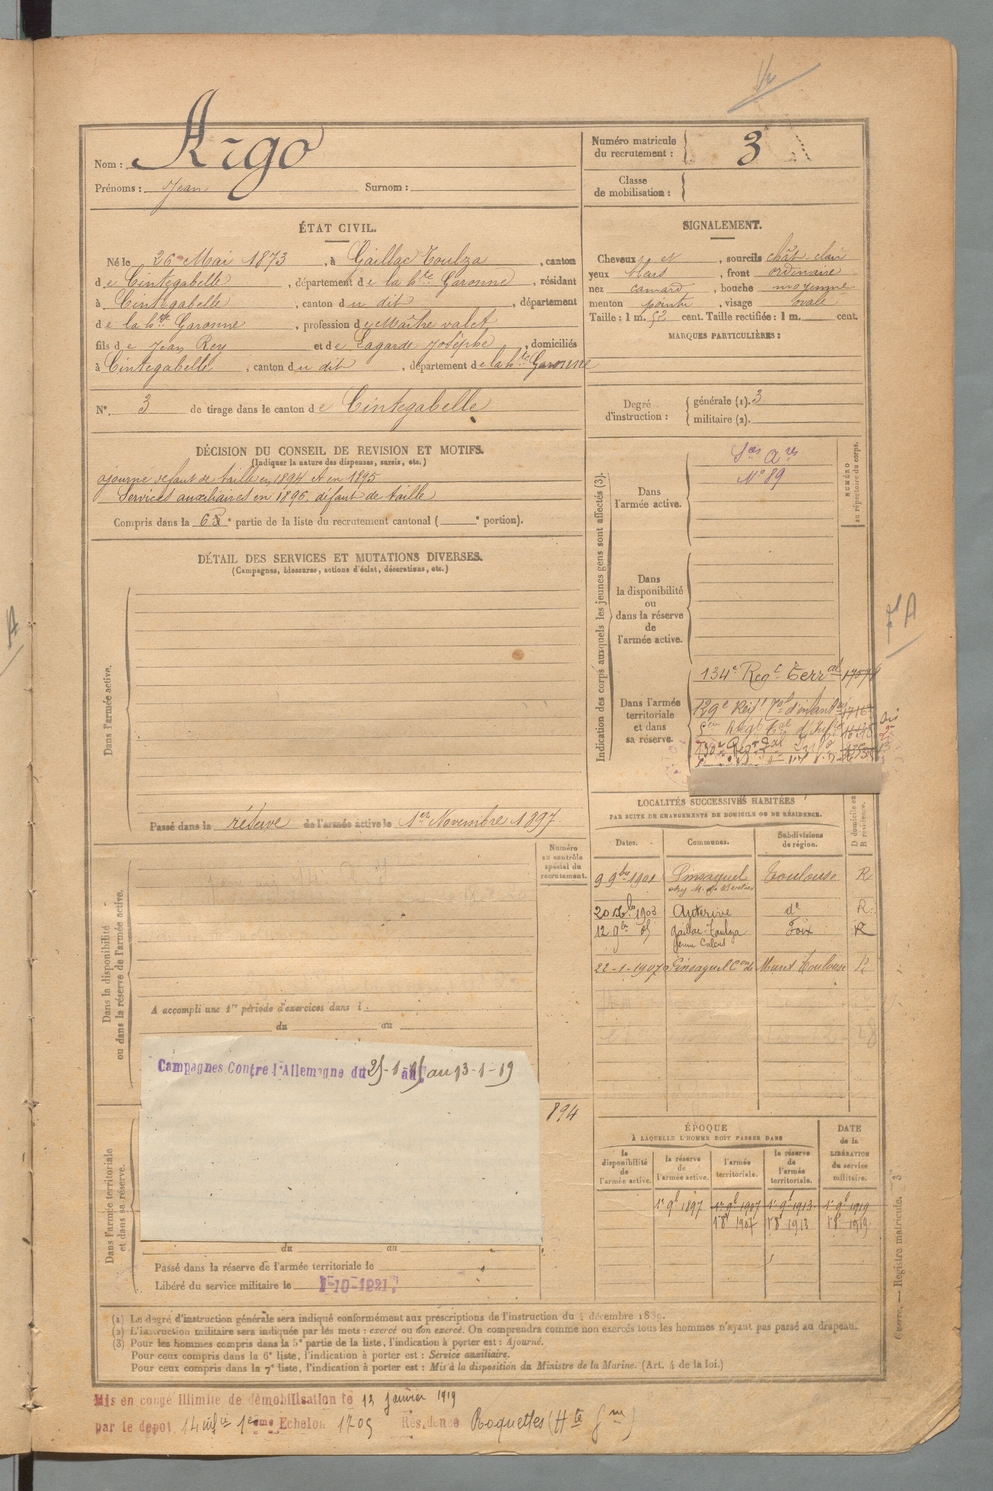 Nom : Argo
Prénoms : Jean Surnom :
Numéro matricule du recrutement : 3
Classe de mobilisation :
ÉTAT CIVIL.
Né le 26 Mai 1873, à Gaillac Toulza, canton
de Cintegabelle, département de la hte Garonne, résidant
à Cintegabelle, canton du dit, département
de la hte Garonne, profession de Maître valet
fils de Jean Rey et de Lagarde Josèphe, domiciliés
à Cintegabelle, canton du dit, département de la hte Garonne
N°. 3 de tirage dans le canton de Cintegabelle
SIGNALEMENT.
Cheveux et, sourcils chât clair
yeux bleus, front ordinaire
nez camard, bouche moyenne
menton pointu, visage ovale
Taille : 1 m. 52 cent. Taille rectifiée : 1 m. cent.
MARQUES PARTICULIÈRES :
Degré d'instruction : générale (1). 3
militaire (2).
DÉCISION DU CONSEIL DE REVISION ET MOTIFS.
(Indiquer la nature des dispenses, sursis, etc.)
ajourné défaut de taille en 1894 et en 1895
Services auxiliaires en 1896, défaut de taille
Compris dans la 6e partie de la liste du recrutement cantonal ( e portion).
DÉTAIL DES SERVICES ET MUTATIONS DIVERSES.
(Campagnes, blessures, actions d'éclat, décorations, etc.)
Dans l'armée active.
Passé dans la réserve de l'armée active le 1er Novembre 1897
Indication des corps auxquels les jeunes gens sont affectés (3).
NUMÉRO au répertoire du corps.
Dans l'armée active.
Sces Ares
N° 89
Dans la disponibilité ou dans la réserve de l'armée active.
Dans l'armée territoriale et dans sa réserve.
134e Regt Terral
129e
Numéro au contrôle spécial du recrutement.
894
Dans la disponibilité ou dans la réserve de l'armée active.
A accompli une 1re période d'exercices dans l
du au
Campagnes Contre l'Allemagne du au 13-1-19
Dans l'armée territoriale et dans sa réserve.
du au
Passé dans la réserve de l'armée territoriale le
Libéré du service militaire le 1-10-1921
LOCALITÉS SUCCESSIVES HABITÉES
PAR SUITE DE CHANGEMENTS DE DOMICILE OU DE RÉSIDENCE.
Dates. Communes. Subdivisions de région. D domicile ou R résidence.
9 9bre 1901 Pinsaguel Toulouse R
Auterive do R
12 9bre 05 Gaillac-Toulza Foix R
22-1-1907 Pinsaguel Con de Muret Toulouse R
ÉPOQUE
À LAQUELLE L'HOMME DOIT PASSER DANS
DATE de la LIBÉRATION du service militaire.
la disponibilité de l'armée active. la réserve de l'armée active. l'armée territoriale. la réserve de l'armée territoriale.
1er 9b 1897 1er 9b 1907 1er 9b 1913 1er 9b 1919
1er 8b 1907 1er 8b 1913 1er 8b 1919
(1) Le degré d'instruction générale sera indiqué conformément aux prescriptions de l'instruction du 4 décembre 1889.
(2) L'instruction militaire sera indiquée par les mots : exercé ou non exercé. On comprendra comme non exercés tous les hommes n'ayant pas passé au drapeau.
(3) Pour les hommes compris dans la 5e partie de la liste, l'indication à porter est : Ajourné.
Pour ceux compris dans la 6e liste, l'indication à porter est : Service auxiliaire.
Pour ceux compris dans la 7e liste, l'indication à porter est : Mis à la disposition du Ministre de la Marine. (Art. 4 de la loi.)
Guerre. — Registre matricule. — 3
Mis en congé illimité de démobilisation le 12 janvier 1919
par le dépôt 14 Echelon Résidence Roquettes (Hte Gne)